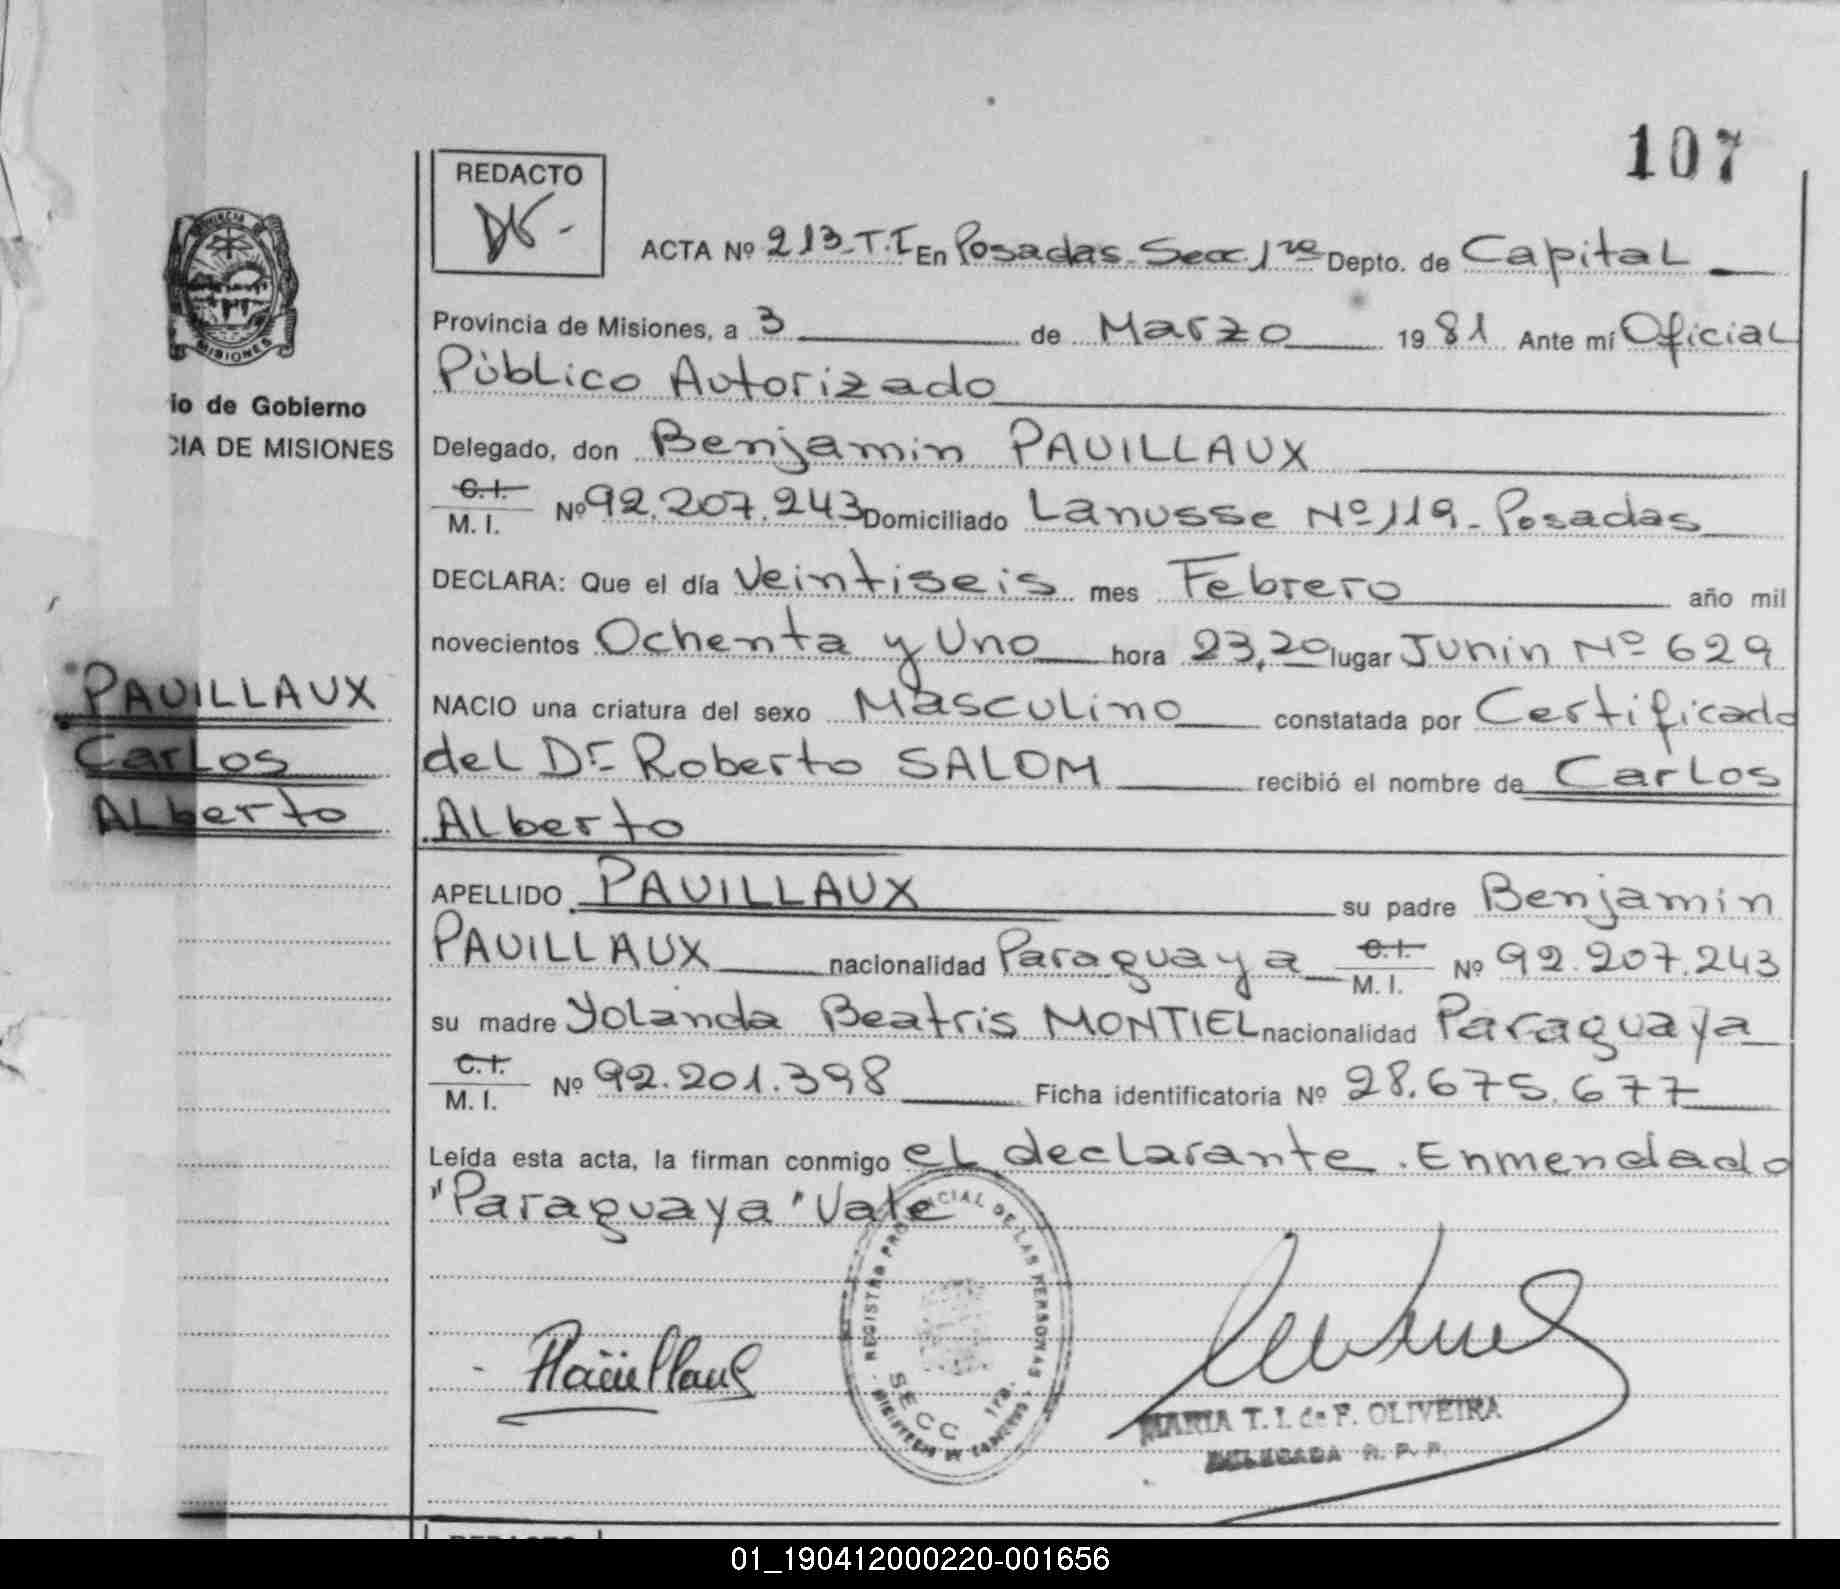 107
REDACTO
ACTA Nº 213-T.I En Posadas-Secc 1ra Depto. de Capital
Provincia de Misiones, a 3 de Marzo 1981 Ante mí Oficial
Público Autorizado
PROVINCIA DE
MISIONES
io de Gobierno
CIA DE MISIONES
Delegado, don Benjamin PAUILLAUX
C.I.
M. I. Nº 92.207.243 Domiciliado Lanusse Nº 119-Posadas
DECLARA: Que el día Veintiseis mes Febrero año mil
novecientos Ochenta y Uno hora 23,20 lugar Junin Nº 629
PAUILLAUX
Carlos
Alberto
NACIO una criatura del sexo Masculino constatada por Certificado
del Dr Roberto SALOM recibió el nombre de Carlos
Alberto
APELLIDO PAUILLAUX su padre Benjamin
PAUILLAUX nacionalidad Paraguaya C.I. M. I. Nº 92.207.243
su madre Yolanda Beatris MONTIEL nacionalidad Paraguaya
C.I.
M. I. Nº 92.201.398 Ficha identificatoria Nº 28.675.677
Leída esta acta, la firman conmigo el declarante. Enmendado
"Paraguaya" Vale
REGISTRO PROVINCIAL DE LAS PERSONAS
SECC 1ra.
MARIA T. I. de F. OLIVEIRA
DELEGADA R. P. P.
01_190412000220-001656